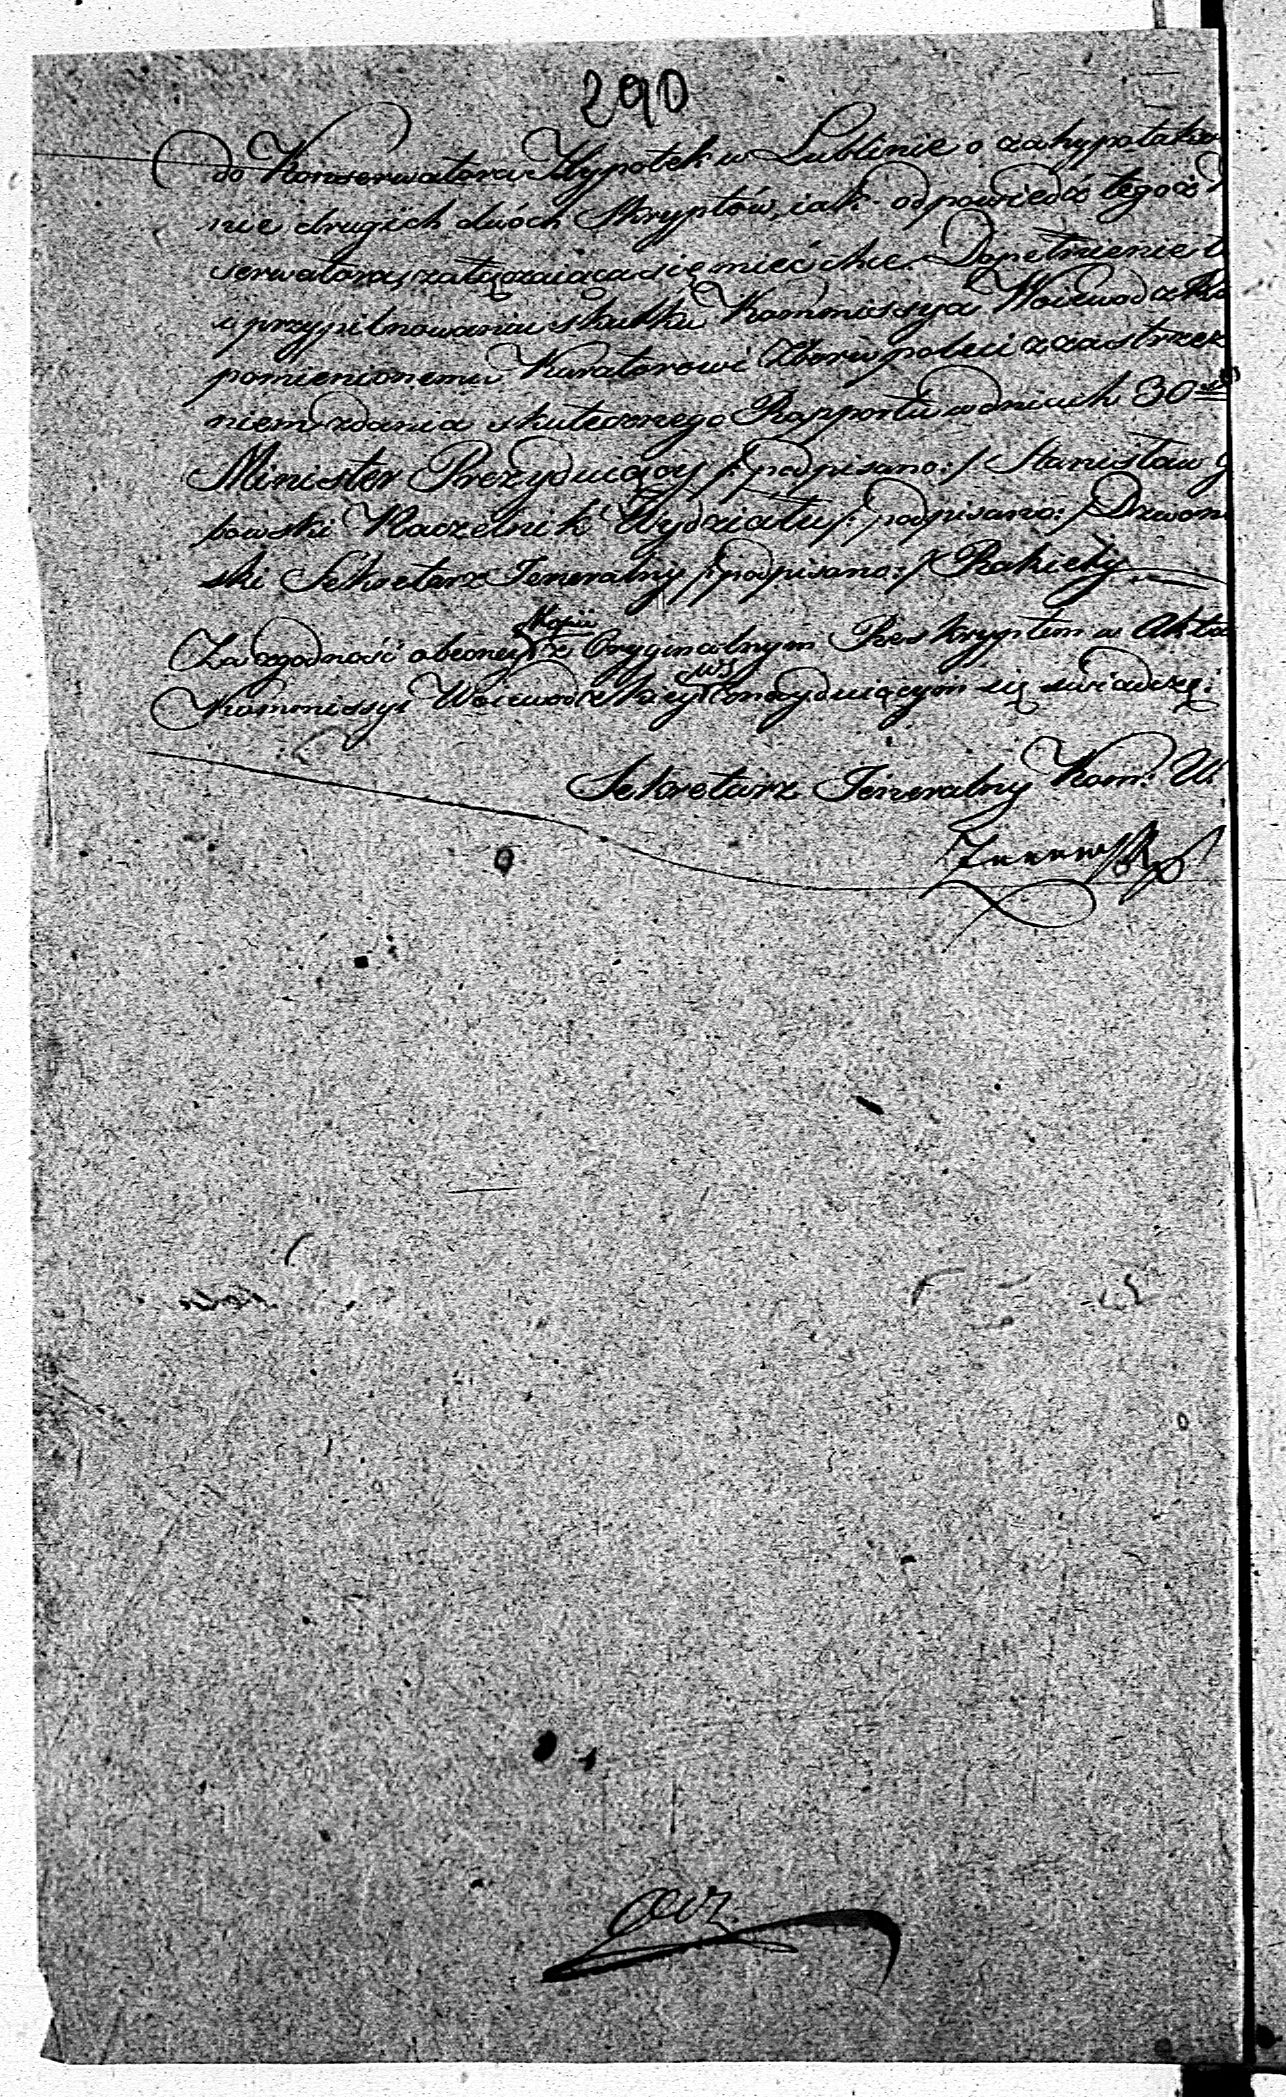 290
do Konserwatora Hypotek w Lublinie o zahypoteko
nie drugich dwóch Skryptów, iak odpowiedź tegoż
serwatora, załączaiąca się mieć chce. Dopełnienie
i przypilnowanie skutku Kommissya Woiewodzka
pomienionemu Kuratorowi Zboru poleci z zastrzeże
niem zdania skutecznego Rapportu w dniach 30stu
Minister Prezyduiący /: podpisano :/ Stanisław G
bowski Naczelnik Wydziału /: podpisano :/ Dzwon
ski Sekretarz Jeneralny /: podpisano :/ Rakiety
Za zgodność obecney Kopii z Oryginalnym Reskryptem w Akta
Kommissyi Woiewodzkiey znayduiącym się świadczę:
Sekretarz Jeneralny Kom: W.